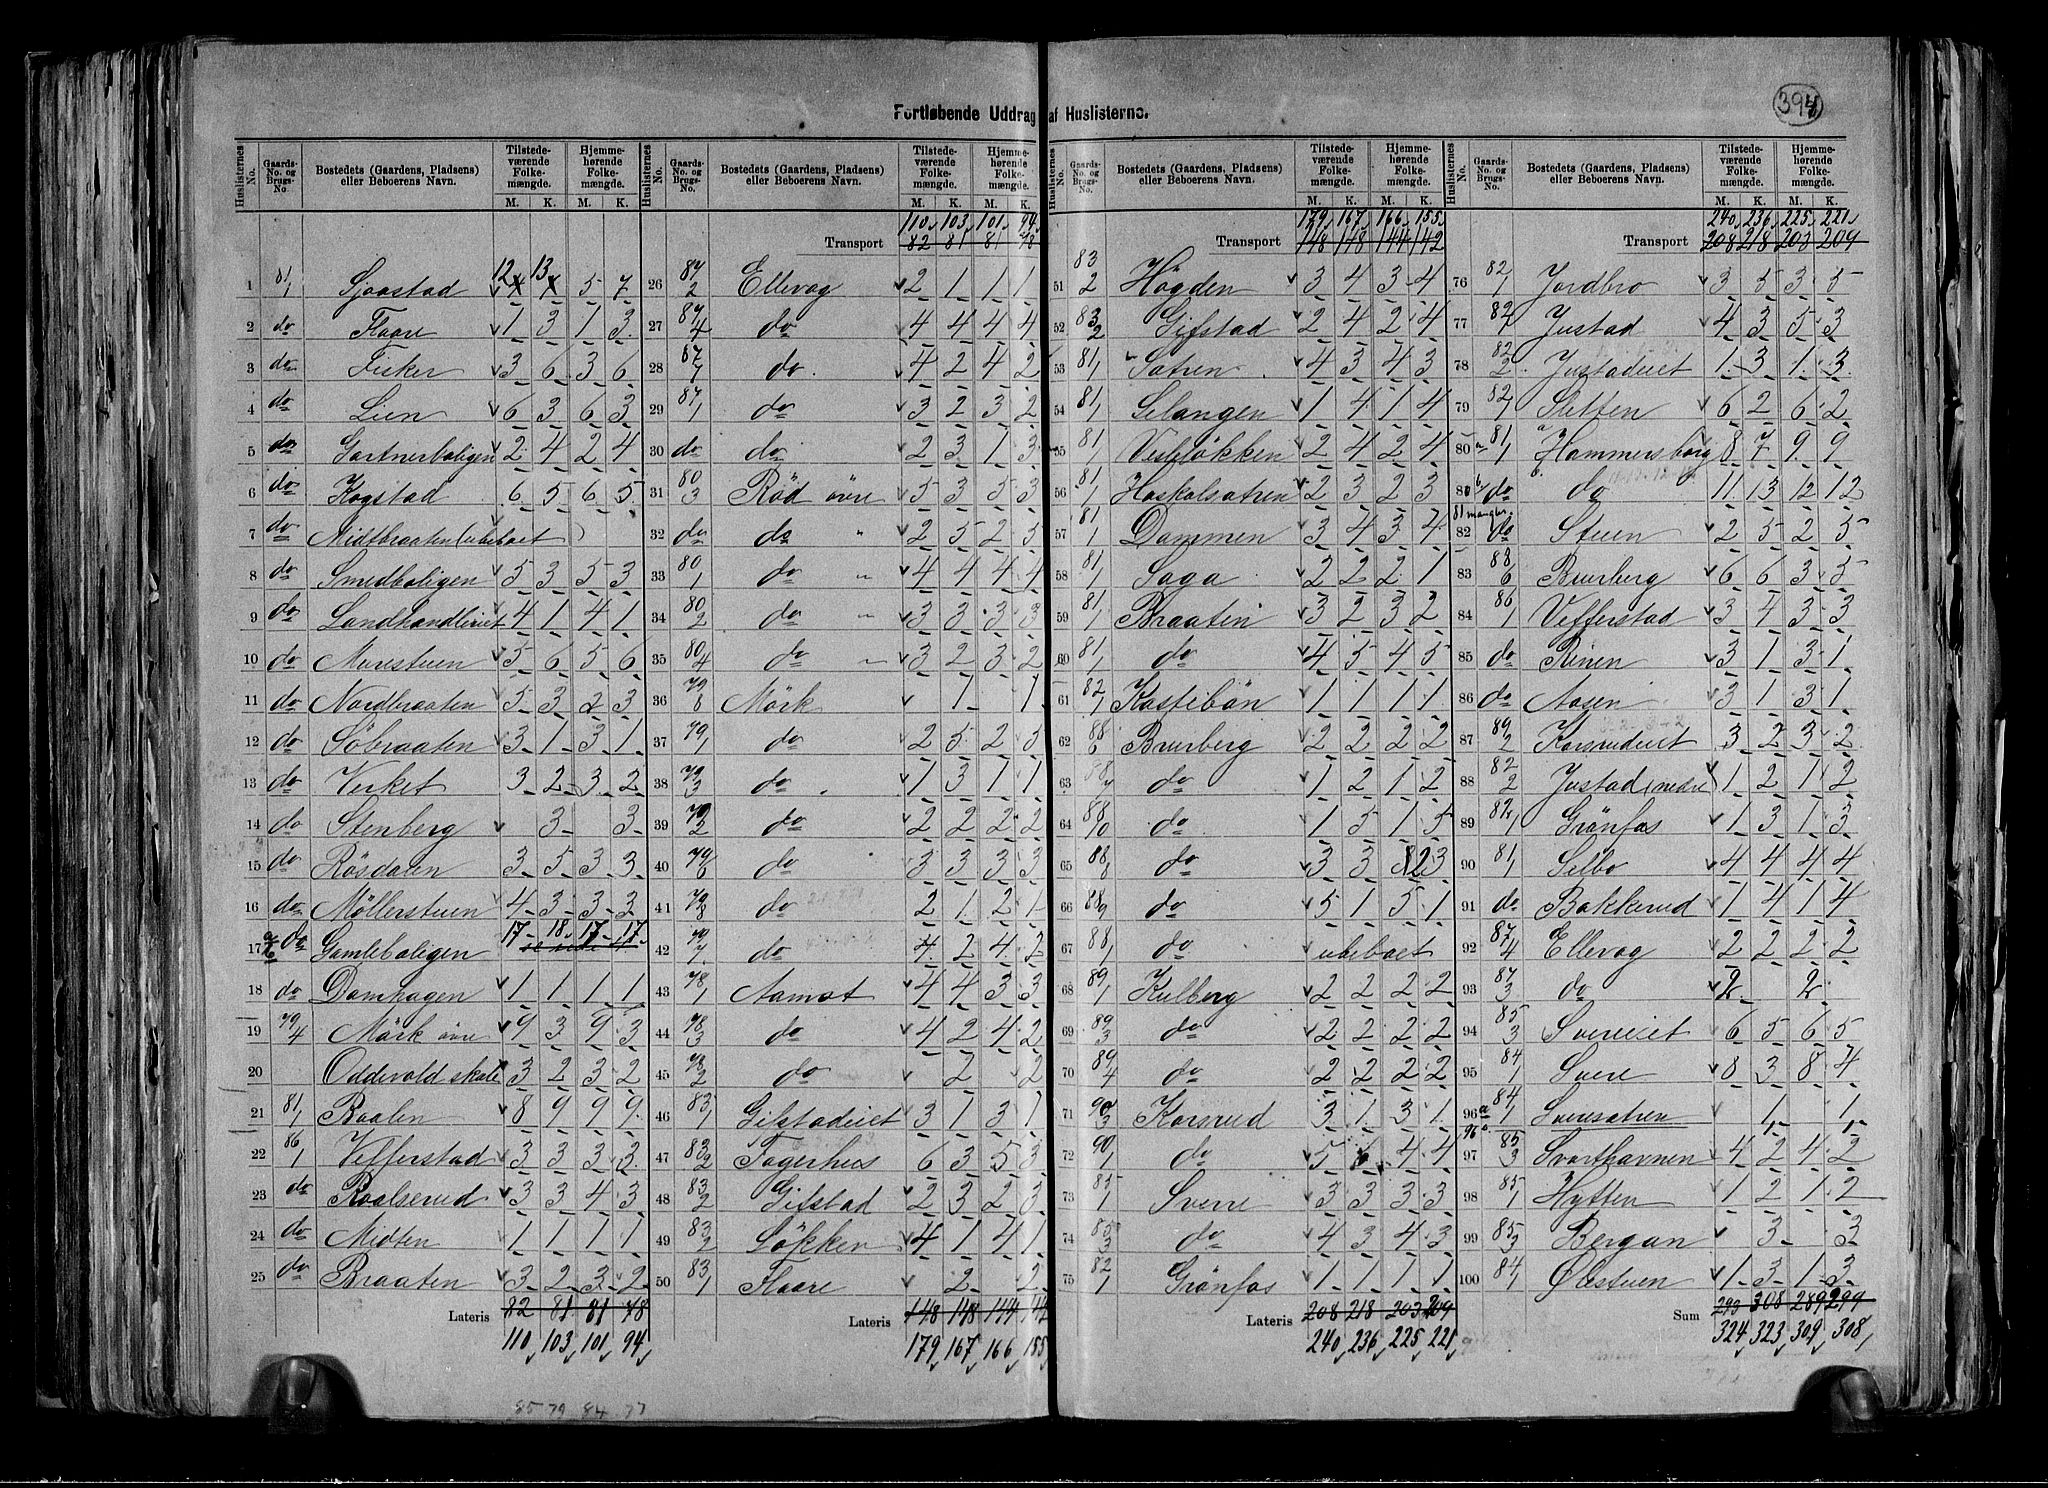 394
Fortløbende Uddrag af Huslisterne.
Huslisternes No. | Gaards-No. og Brugs-No. | Bostedets (Gaardens, Pladsens) eller Beboerens Navn. | Tilstedeværende Folkemængde. M. K. | Hjemmehørende Folkemængde. M. K.
1 81/1 Sjaastad 12 13 5 7
2 do Flaare 1 3 1 3
3 do Ficker 3 6 3 6
4 do Lien 6 3 6 3
5 do Gartnerboligen 2 4 2 4
6 do Kogstad 6 5 6 5
7 do Midtbraaten (ubeboet)
8 do Smedboligen 5 3 5 3
9 do Landhandleriet 4 1 4 1
10 do Murestuen 5 6 5 6
11 do Nordbraaten 5 3 2 3
12 do Söbraaten 3 1 3 1
13 do Verket 3 2 3 2
14 do Stenberg 3 3
15 do Rösdalen 3 5 3 3
16 do Möllerstuen 4 3 3 3
17 a/b do Gamleboligen 17 18 17 17
18 do Damhagen 1 1 1 1
19 79/4 Mörk övre 9 3 9 3
20 Oddevold skole 3 2 3 2
21 81/1 Baalen 8 9 9 9
22 86/1 Vefferstad 3 3 3 3
23 do Roalserud 3 3 4 3
24 do Midten 1 1 1 1
25 do Braaten 3 2 3 2
Lateris 82 81 81 78
110 103 101 94
85 79 84 77
110 103 101 94
Transport 82 81 81 78
26 87/2 Ellevog 2 1 1 1
27 87/4 do 4 4 4 4
28 87/7 do 4 2 4 2
29 87/1 do 3 2 3 2
30 do do 2 3 1 3
31 80/3 Röd övre 5 3 5 3
32 do do " 2 5 2 5
33 80/1 do " 4 4 4 4
34 80/2 do " 3 3 3 3
35 80/4 do " 3 2 3 2
36 79/8 Mörk 1 1
37 79/1 do 2 5 2 5
38 79/3 do 1 3 1 1
39 79/2 do 2 2 2 2
40 79/6 do 3 3 3 3
41 79/8 do 2 1 2 1
42 79/7 do 4 2 4 2
43 78/1 Aamot 4 4 3 3
44 78/3 do 4 2 4 2
45 78/2 do 2 2
46 83/1 Gifstadeiet 3 1 3 1
47 83/2 Fagerhus 6 3 5 3
48 83/2 Gifstad 2 3 2 3
49 83/2 Lökken 4 1 4 1
50 83/1 Flaare 2 2
Lateris 148 148 144 142
179 167 166 155
179 167 166 155
Transport 148 148 144 142
51 83/2 Högden 3 4 3 4
52 83/2 Gifstad 2 4 2 4
53 81/1 Sætren 4 3 4 3
54 81/1 Selangen 1 4 1 4
55 81/1 Veslelökken 2 4 2 4
56 81/1 Haskolsætren 2 3 2 3
57 81/1 Dammen 3 4 3 4
58 81/1 Saga 2 2 2 1
59 81/1 Braaten 3 2 3 2
60 81/1 do 4 5 4 5
61 82/1 Kastebön 1 1 1 1
62 88/6 Bruberg 2 2 2 2
63 88/7 do 1 2 1 2
64 88/10 do 1 5 1 5
65 88/8 do 3 3 2 3
66 88/9 do 5 1 5 1
67 88/1 do ubeboet
68 89/1 Kulberg 2 2 2 2
69 89/3 do 2 2 2 2
70 89/4 do 2 2 2 2
71 90/3 Korsrud 3 1 3 1
72 90/1 do 5 6 4 4
73 85/1 Svere 3 3 3 3
74 85/3 do 4 3 4 3
75 82/1 Grönfos 1 1 1 1
Lateris 208 218 203 209
240 236 225 221
240 236 225 221
Transport 208 218 203 209
76 82/1 Jordbro 3 5 3 5
77 82/1 Justad 4 3 5 3
78 82/2 Justadeiet 1 3 1 3
79 82/1 Sletten 6 2 6 2
80 a 81/1 a Hammersborg 8 7 9 9
80 b do b do 11 13 12 12
81 mangler
82 do Stuen 2 5 2 5
83 88/6 Bruberg 6 6 3 5
84 86/1 Vefferstad 3 4 3 3
85 do Rinen 3 1 3 1
86 do Aasen 3 1 3 1
87 89/2 Korsrudeiet 3 2 3 2
88 82/2 Justad (nedre 1 2 1 2
89 82/1 Grönfos 1 3 1 3
90 81/1 Selbo 4 4 4 4
91 do Bakkerud 1 4 1 4
92 87/4 Ellevog 2 2 2 2
93 87/3 do 2 2
94 85/3 Svereiet 6 5 6 5
95 84/1 Svere 8 3 8 4
96 a 84/1 Sveresætren 1 1
96 b
97 85/3 Svarthavnen 4 2 4 2
98 85/1 Hytten 1 2 1 2
99 85/3 Bergan 3 3
100 84/1 Ølstuen 1 3 1 3
Sum 293 308 289 299
324 323 309 308